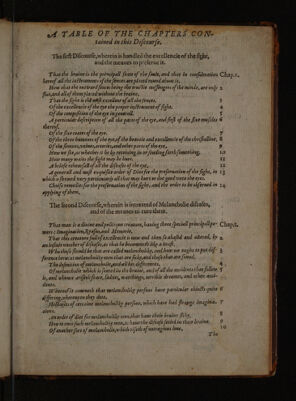 A TABLE OF THE CHAPTERS CON-
tained in this Discourse.
The first Discourse, wherein is handled the excellencie of the sight,
and the meanes to preserue it.
That the braine is the principall seate of the soule, and that in consideration Chap. 1.
hereof all the instruments of the sences are placed round about it.
How that the outward sences being the trustie messengers of the minde, are 2
and all of them placed without the braine.
That the sight is the most excellent of all the sences. 3
Of the excellencie of the eye the proper instrument of sight. 4
Of the composition of the eye in generall. 5
A particular description of all the parts of the eye, and first of the sixe muscles 6
thereof.
Of the sixe coates of the eye. 7
Of the three humours of the eye, and of the beautie and excellencie of the christalline. 8
Of the sinewes, veines, arteries, and other parts of the eye. 9
How we see, or whether it be by receiuing in or sending forth something. 10
How many waies the sight may be hurt. 11
A briefe rehearsall of all the diseases of the eye. 12
A generall and most exquisite order of Diet for the preseruation of the sight, in 13
which is shewed very particularly all that may hurt or doe good vnto the eyes.
Choise remedies for the preseruation of the sight, and the order to be obserued in 14
applying of them.
The second Discourse, wherein is intreated of Melancholie diseases,
and of the meanes to cure them.
That man is a diuine and politique creature, having three speciall principall po- Chap. 1.
wers: Imagination, Reason, and Memorie.
That this creature full of excellencie is now and then so abased and altered, by 2
an infinite number of diseases, as that he becommeth like a beast.
Who those should be that are called melancholike, and how we ought to put dif- 3
ference betwixt melancholy men that are sicke, and those that are sound.
The definition of melancholie, and all her differences. 4
Of melancholie which is seated in the braine, and of all the accidents that follow 5
it, and whence ariseth feare, sadnes, watchings, terrible dreames, and other acci-
dents.
Whereof it commeth that melancholike persons haue particular obiects quite 6
differing, whereupon they dote.
Histories of certaine melancholike persons, which haue had strange imagina- 7
tions.
An order of diet for melancholike men, that haue their braine sicke. 8
How to cure such melancholike men, as haue the disease setled in their braine. 9
Of another sort of melancholie, which riseth of outragious loue. 10
The